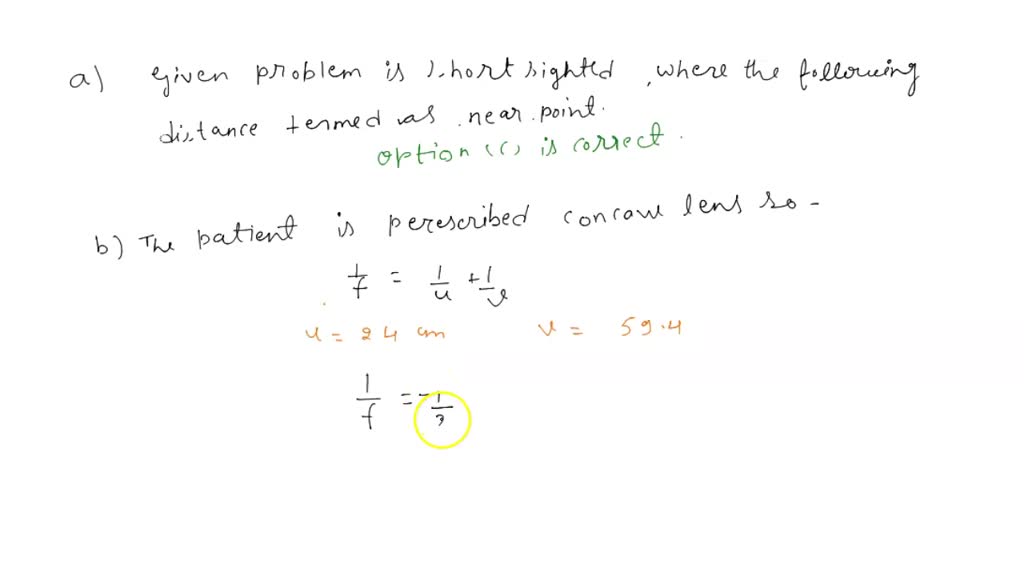 a) Given problem is short sighted, where the following
distance termed as near point.
option (c) is correct.
b) The patient is perescribed concave lens so -
1/f = 1/u + 1/v
u = 24 cm v = 59.4
1/f = -1/2